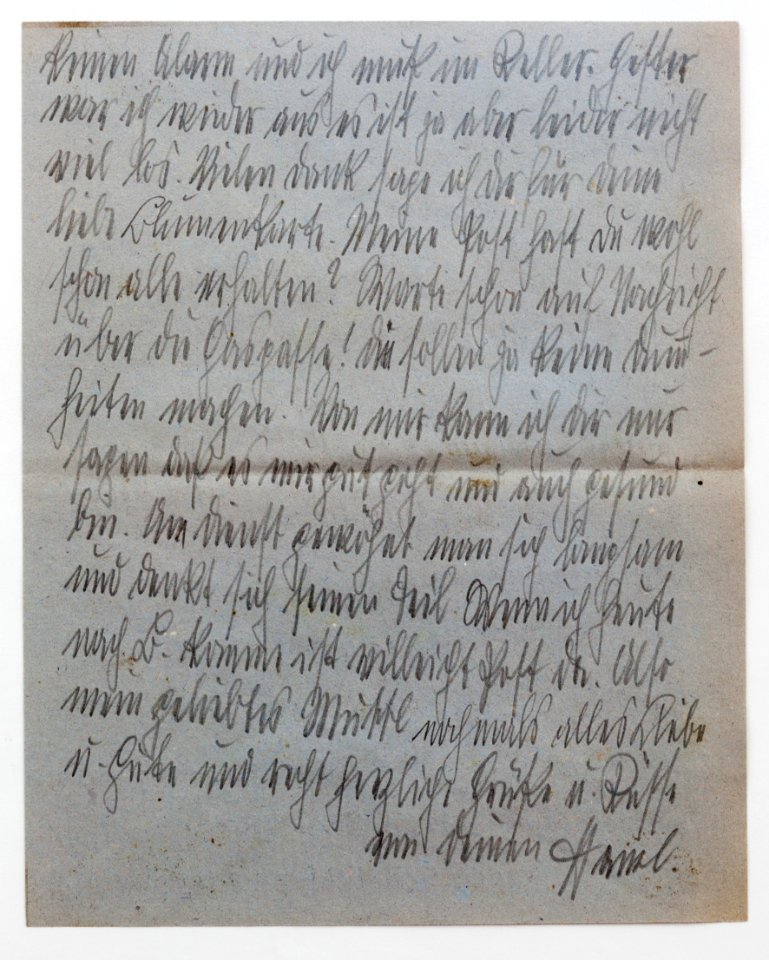 keinen Alarm und ich muß im Keller. Gester
war ich wieder aus es ist ja aber leider nicht
viel los. Vielen dank sage ich dir für deine
liebe Blumenkarte. Meine Post hast du wohl
schon alle erhalten? Warte schon auf Nachricht
über die Gaspasse! Die sollen ja keine dum-
heiten machen. Von mir kann ich dir nur
sagen daß es mir gut geht und auch gesund
bin. Am dienst gewöhnt man sich langsam
und denkt sich seinen Teil. Wenn ich heute
nach B. komme ist villeicht Post da. Also
mein geliebtes Muttl nochmals alles Liebe
u. Gute und recht herzliche Grüße u. Küsse
von deinen